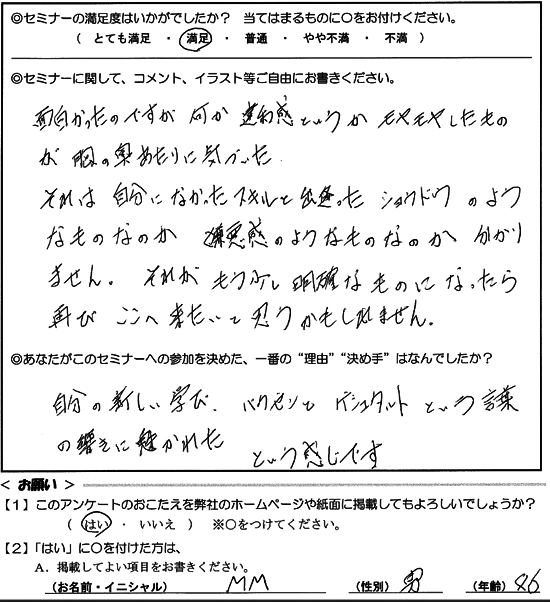 ◎セミナーの満足度はいかがでしたか？　当てはまるものに○をお付けください。
（　とても満足　・　満足　・　普通　・　やや不満　・　不満　）
◎セミナーに関して、コメント、イラスト等ご自由にお書きください。
面白かったのですが 何か 違和感というか モヤモヤしたもの
が 胸の奥あたりに気づいた
それは 自分になかったスキルと出逢った ショウドウ のよう
なものなのか 嫌悪感のようなものなのか 分かり
ません。 それが もう少し 明確なものになったら
再び ここへ 来たいと思うかもしれません。
◎あなたがこのセミナーへの参加を決めた、一番の“理由”“決め手”はなんでしたか？
自分の新しい学び、 ゲシュタルト という 言葉
の響きに 惹かれた という感じです
＜ お願い ＞
【１】このアンケートのおこたえを弊社のホームページや紙面に掲載してもよろしいでしょうか？
（　はい　・　いいえ　）　※○をつけてください。
【２】「はい」に○を付けた方は、
Ａ．掲載してよい項目をお書きください。
（お名前・イニシャル）　MM　（性別）　男　（年齢）　46